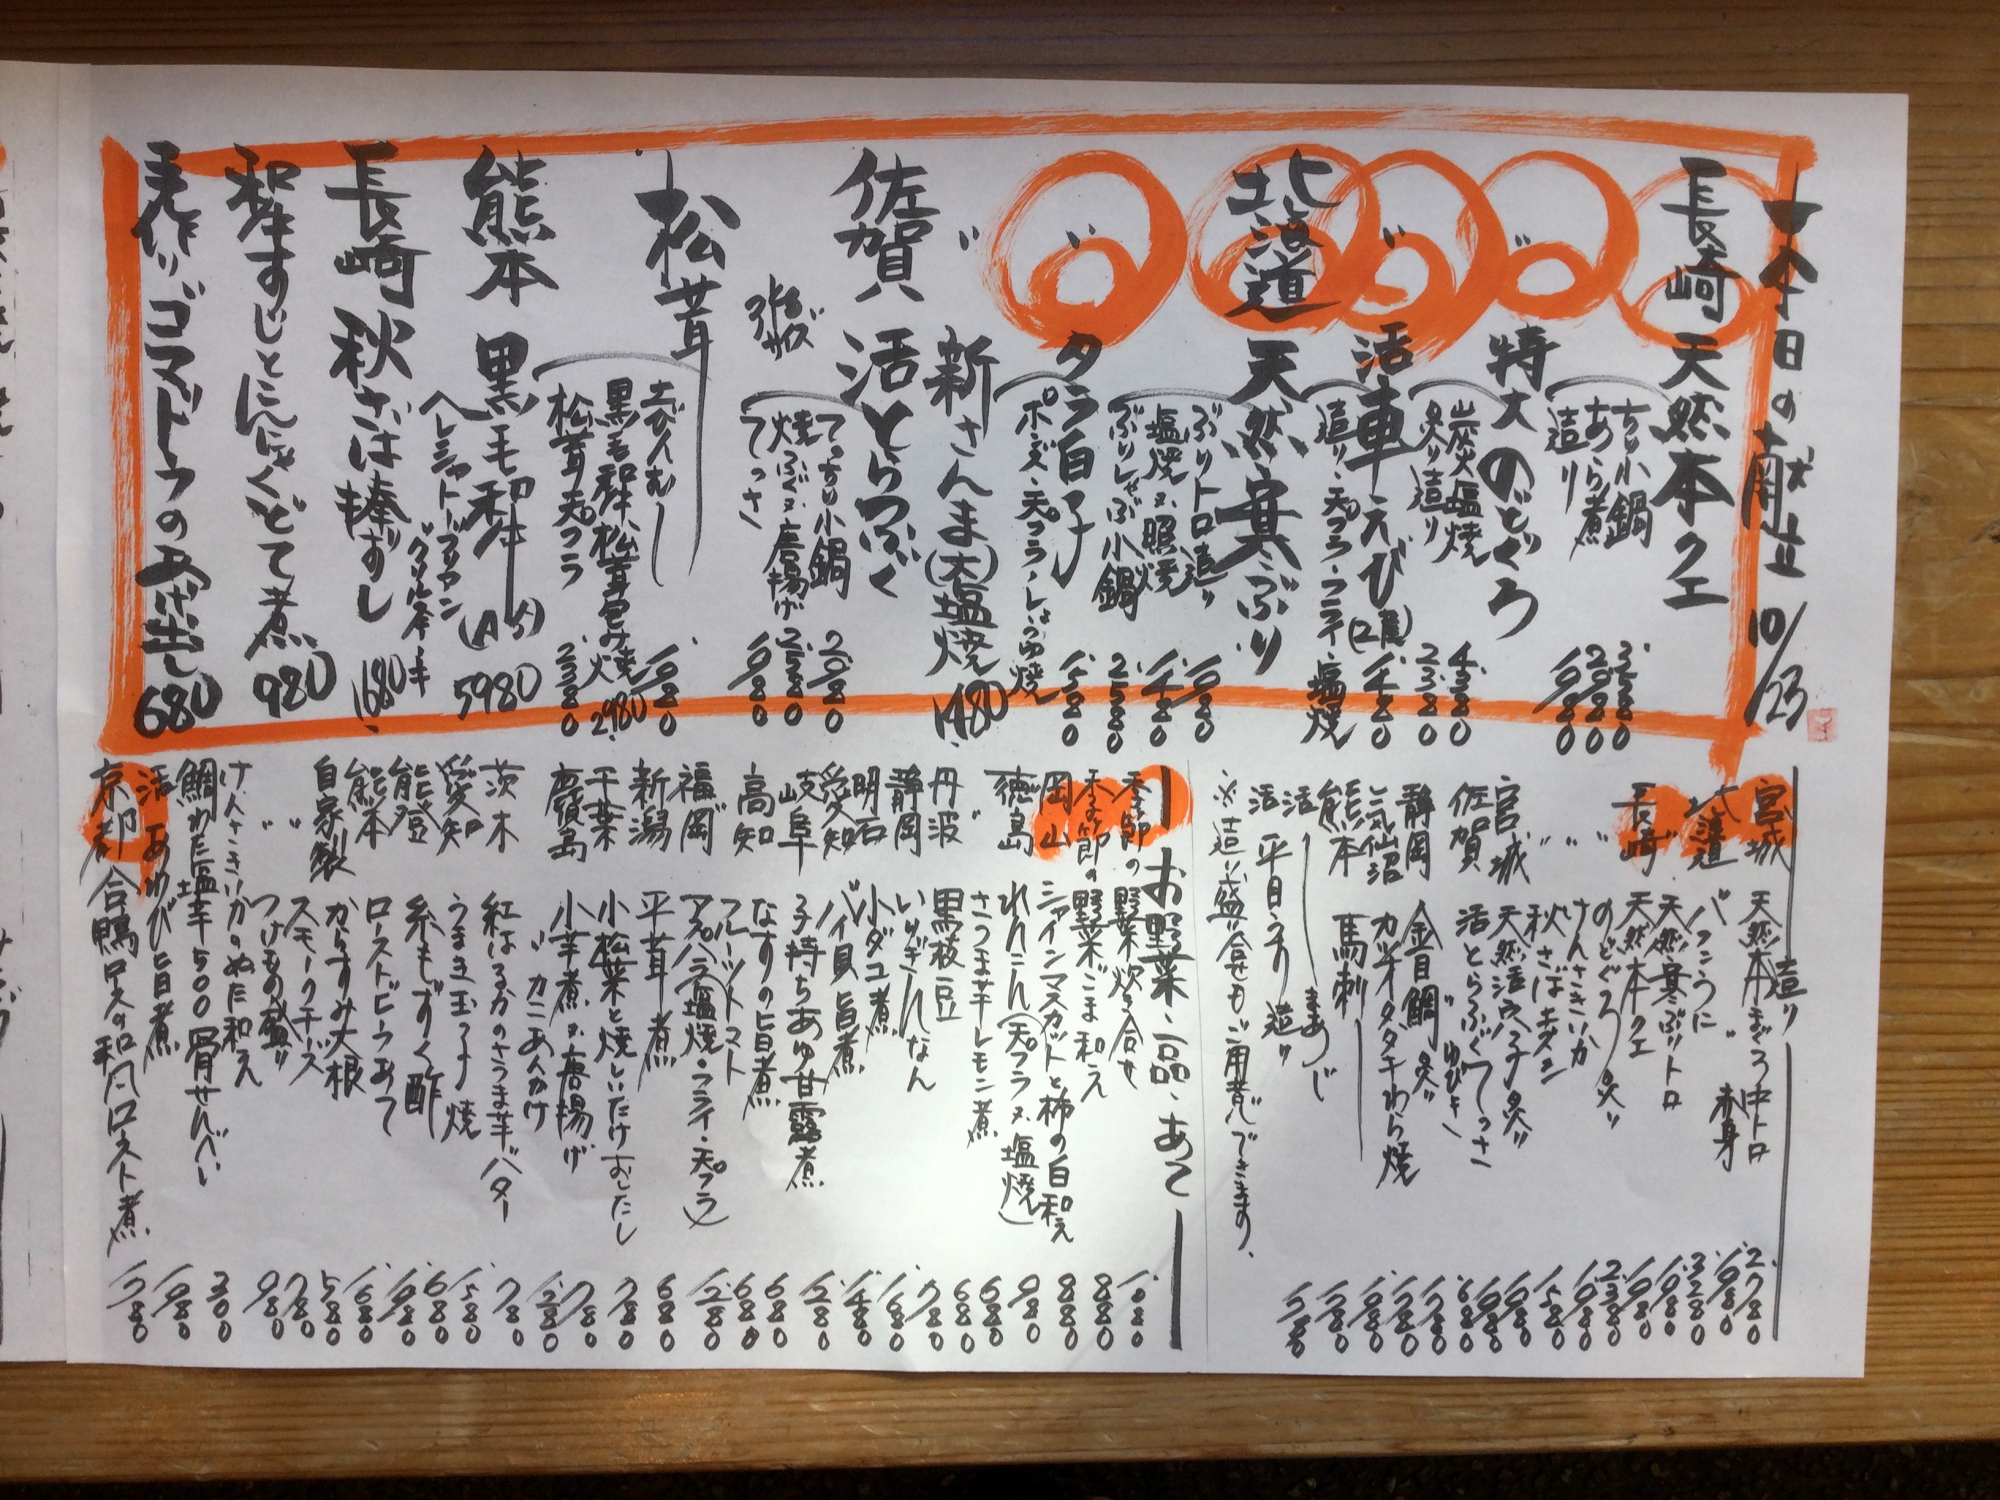 本日の献立 10/23
長崎 天然本クエ
ちり小鍋 3.280
あら煮 2.080
造り 1.980
〃 特大のどぐろ
炭火塩焼 4.380
炙り造り 2.380
〃 活車えび(2尾)
造り・天プラ・フライ・塩焼 1.480
北海道 天然寒ぶり
ぶりトロ造り 1.980
塩焼又照焼 1.480
ぶりしゃぶ小鍋 2.580
〃 タラ白子
ポン酢・天プラ・しょうゆ焼 1.580
〃 新さんま(大)塩焼 1480
佐賀 活とらふぐ
てっちり小鍋 2.080
焼ふぐ又唐揚げ 2.580
てっさ 1.980
松茸
土びんむし 1.980
黒毛和牛松茸包み焼 2.980
松茸天プラ 2.380
熊本 黒毛和牛(A5)
ヘレシャトーブリアン 5980
長崎 秋さば棒ずし 1680
和牛すじとにんにくどて煮 980
手作りゴマドウフの揚げ出し 680
造り
宮城 天然本まぐろ 中トロ 2.780
赤身 1.980
北海道 バフンうに 3.280
天然寒ぶりトロ 1.980
長崎 天然本クエ 1.980
〃 のどぐろ炙り 2.380
〃 けんさきいか 1.980
〃 秋さばキズシ 1.580
宮城 天然活穴子炙り
佐賀 活とらふぐてっさ 1.980
静岡 金目鯛炙り
気仙沼 カツオタタキわら焼
熊本 馬刺
活 まあじ
活 平目うすり造り
※造り盛り合せもご用意できます、
お野菜・一品・あて
季節の野菜炊き合せ 1.080
季節の野菜ごま和え 880
岡山 シャインマスカットと柿の白和え 880
徳島 れんこん(天プラ又塩焼) 980
〃 さつま芋レモン煮 680
丹波 黒枝豆 680
静岡 いりぎんなん 780
明石 小ダコ煮 1.680
愛知 バイ貝旨煮 1.480
岐阜 子持ちあゆ甘露煮 1.280
高知 なすの旨煮 680
フルーツトマト 680
福岡 アスパラ(塩焼・フライ・天プラ) 1.280
新潟 平茸煮 680
千葉 小松菜と焼しいたけおしたし 780
鹿児島 小芋煮又唐揚げ 780
〃 カニあんかけ 1.280
茨木 紅はるかのさつま芋バター 780
愛知 うまき玉子焼 1.580
能登 糸もずく酢 680
熊本 ローストビーフあて 1.980
自家製 からすみ大根 1.680
〃 スモークチーズ 580
〃 つけもの盛り 780
けんさきいかのぬた和え 980
鯛わた塩辛500 骨せんべい 300
活あわび旨煮 1.980
京都 合鴨ロースの和風ロースト煮 1.780